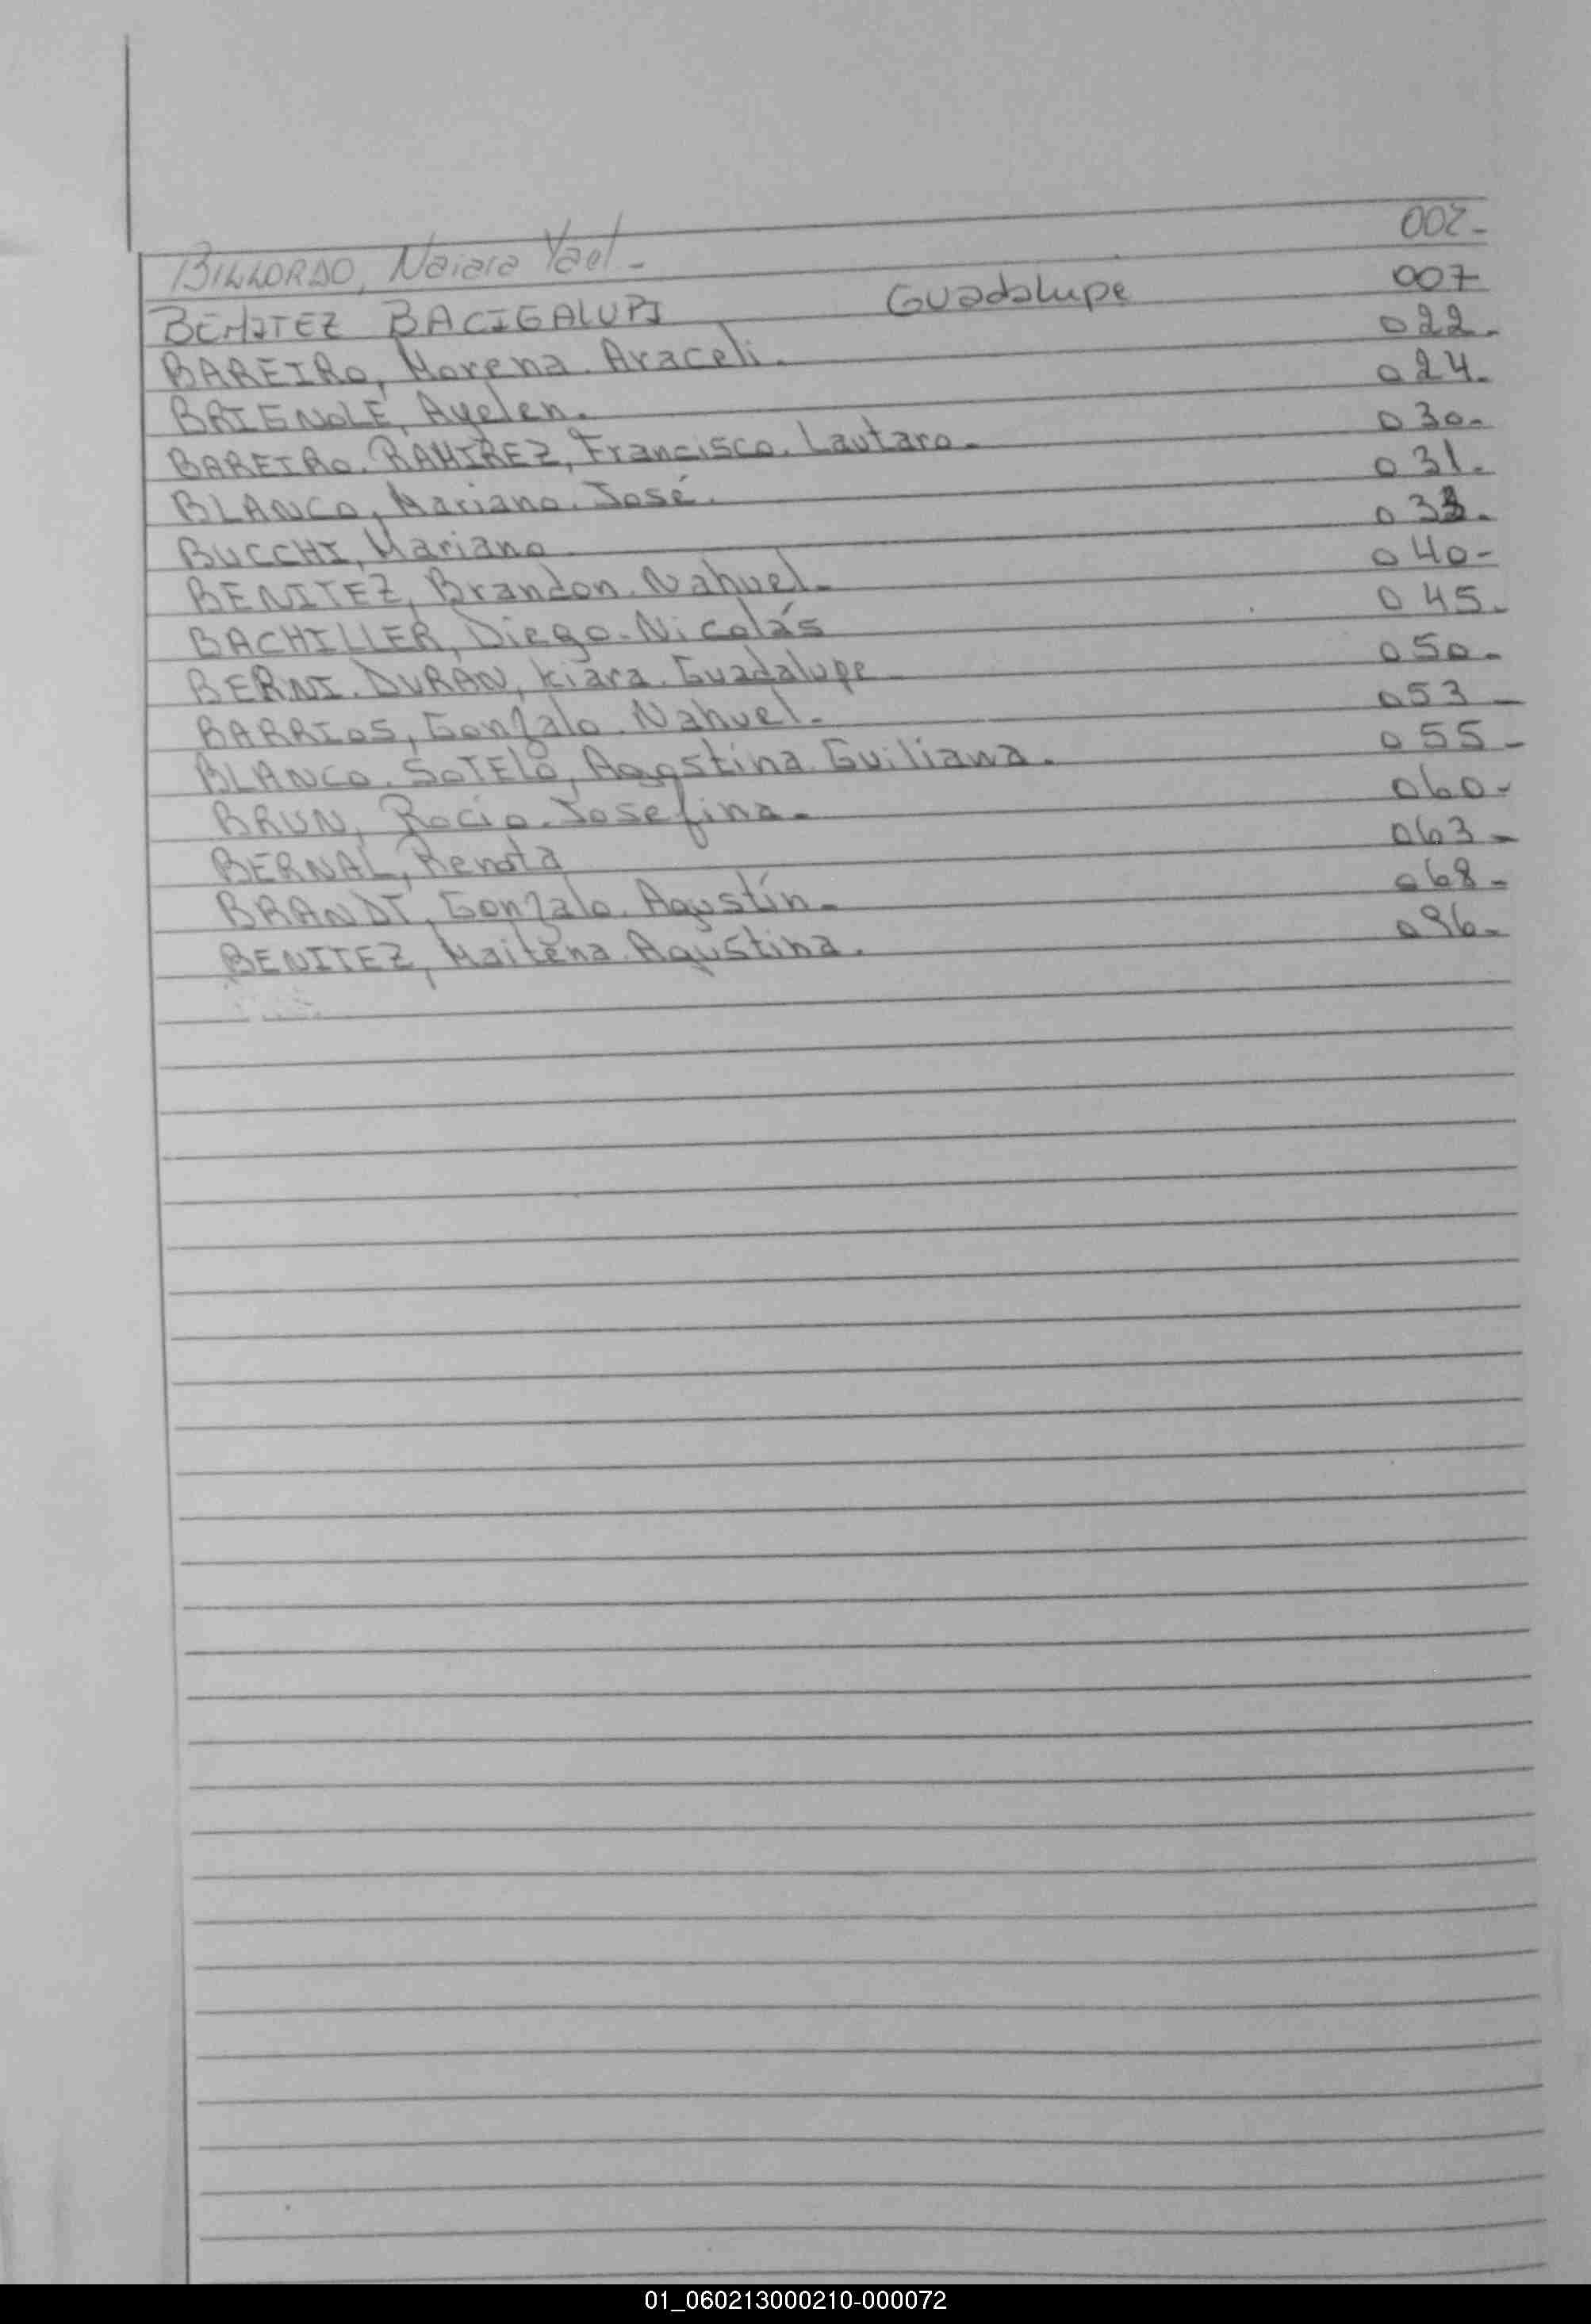 BILLORDO, Naiara Yael- 002-
BENITEZ BACIGALUPI Guadalupe 007
BAREIRO, Morena. Araceli. 022.
BRIGNOLE, Ayelen. 024.
BAREIRO. RAMIREZ, Francisco. Lautaro- 030-
BLANCO, Mariano. José. 031.
BUCCHI, Mariano 033.
BENITEZ, Brandon. Nahuel- 040-
BACHILLER, Diego-Nicolás 045-
BERNI. DURÁN, Kiara. Guadalupe 050-
BARRIOS, Gonzalo. Nahuel- 053-
BLANCO. SOTELO, Agostina Guiliana. 055-
BRUN, Rocío-Josefina- 060-
BERNAL, Renata 063-
BRANDT, Gonzalo. Agustín- 068-
BENITEZ, Maitena. Agustina. 096-
01_060213000210-000072